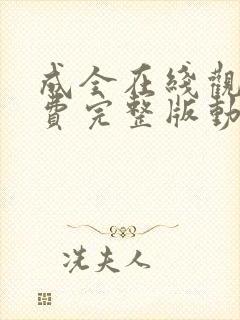 成全在綫觀
費完整版動
冼夫人